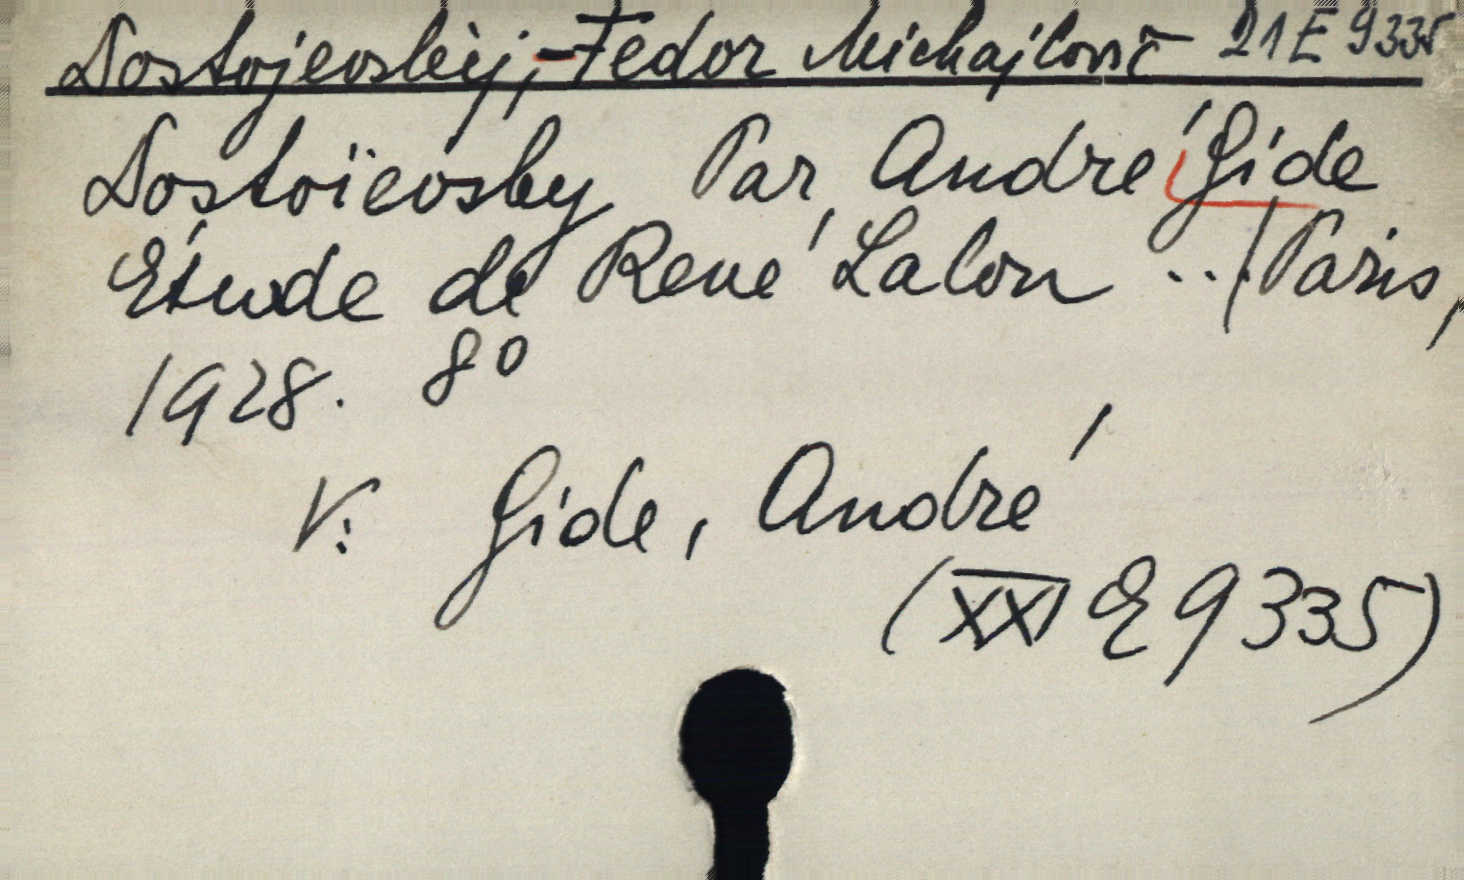 Dostojevskij, Fedor Michajlovič 21 E 9335
Dostoïevsky Par André Gide
Étude de René Lalou .. (Paris,
1928. 8°
V: Gide, André
(XXI E 9335)